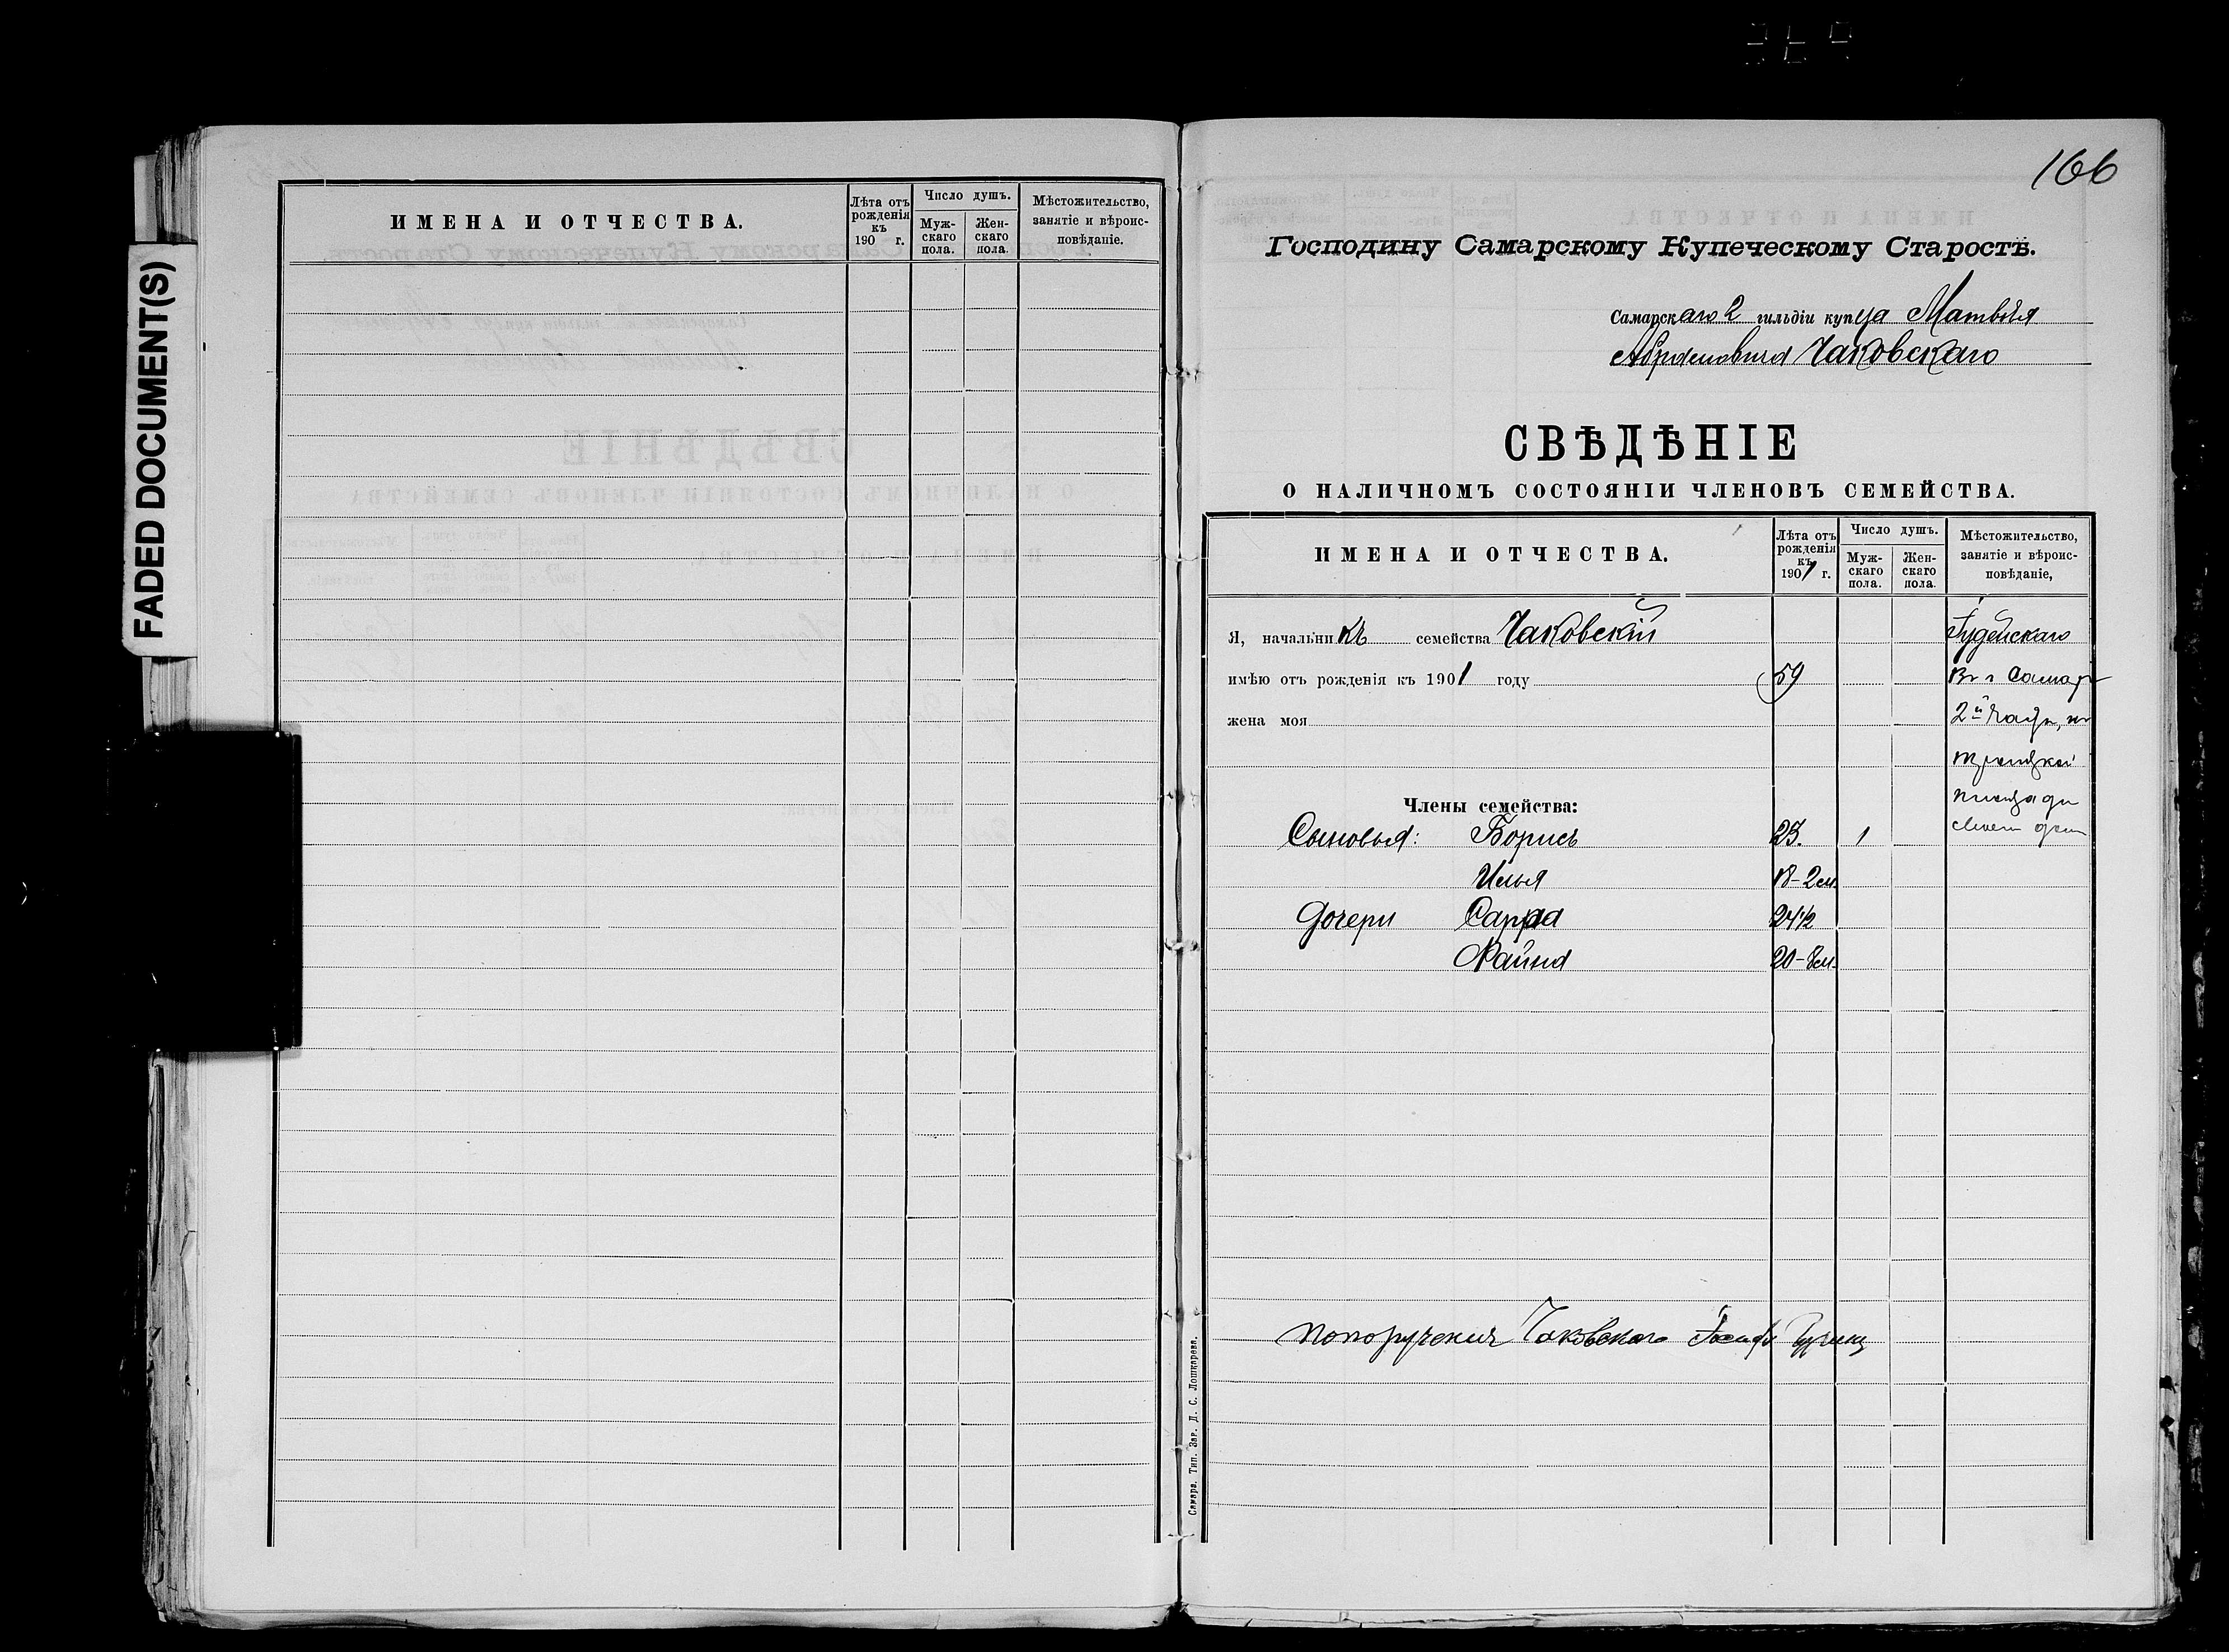 FADED DOCUMENT(S)
ИМЕНА И ОТЧЕСТВА.
Лѣта отъ рожденія къ 190 г.
Число душъ.
Мужскаго пола.
Женскаго пола.
Мѣстожительство, занятіе и вѣроисповѣданіе.
166
Господину Самарскому Купеческому Старостѣ.
Самарскаго 2 гильдіи купца Матвѣя
Абрамовича Чаковскаго
СВѢДѢНІЕ
О НАЛИЧНОМЪ СОСТОЯНІИ ЧЛЕНОВЪ СЕМЕЙСТВА.
ИМЕНА И ОТЧЕСТВА.
Лѣта отъ рожденія къ 1901 г.
Число душъ.
Мужскаго пола.
Женскаго пола.
Мѣстожительство, занятіе и вѣроисповѣданіе,
Я, начальникъ семейства Чаковскій Іудейскаго
имѣю отъ рожденія къ 1901 году 59 въ г Самарѣ
жена моя 2й части, на
троицкой
площади
Члены семейства:
Сыновья: Борисъ 23. 1
своем дом
Илья 18-2 м.
Дочери Сарра 24 1/2
Файна 20-8 м.
По порученію Чаковскаго Іосифъ
Самара. Тип. Зар. Д. С. Лошкарева.